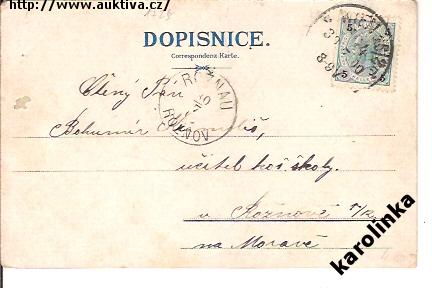 http://www.auktiva.cz/
DOPISNICE.
Correspondenz-Karte.
ROŽNAU
ROŽNOV
Ctěný Pán
Bohumír
učitel koš. školy.
v Rožnově p/R.
na Moravě
karolinka